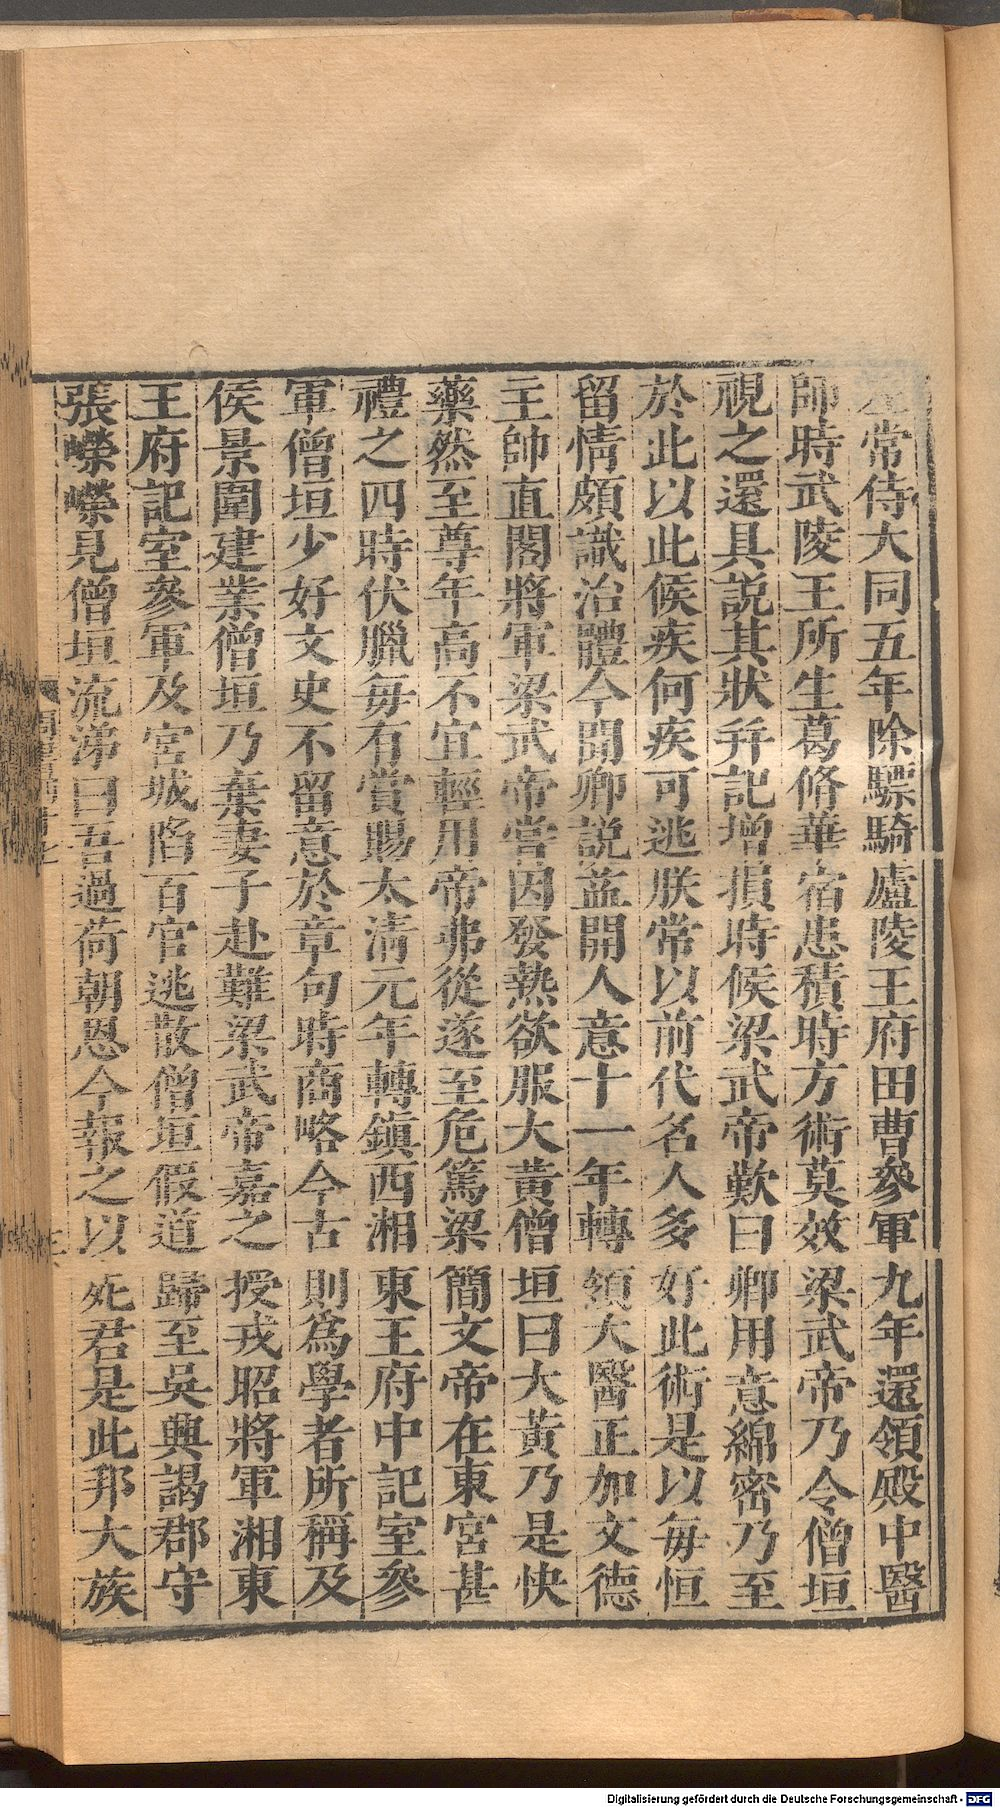 常侍大同五年除驃騎廬陵王府田曹參軍九年還領殿中醫
師時武陵王所生葛脩華宿患積時方術莫效梁武帝乃令僧垣
視之還具說其狀并記增損時候梁武帝歎曰卿用意綿密乃至
於此以此候疾何疾可逃朕常以前代名人多好此術是以每恒
留情頗識治體今聞卿說益開人意十一年轉領大醫正加文德
主帥直閤將軍梁武帝嘗因發熱欲服大黃僧垣曰大黃乃是快
藥然至尊年高不宜輕用帝弗從遂至危篤梁簡文帝在東宮甚
禮之四時伏臘每有賞賜太清元年轉鎮西湘東王府中記室參
軍僧垣少好文史不留意於章句時商略今古則為學者所稱及
侯景圍建業僧垣乃棄妻子赴難梁武帝嘉之授戎昭將軍湘東
王府記室參軍及宮城陷百官逃散僧垣假道歸至吳興謁郡守
張嶸嶸見僧垣流涕曰吾過荷朝恩今報之以死君是此邦大族
Digitalisierung gefördert durch die Deutsche Forschungsgemeinschaft - DFG